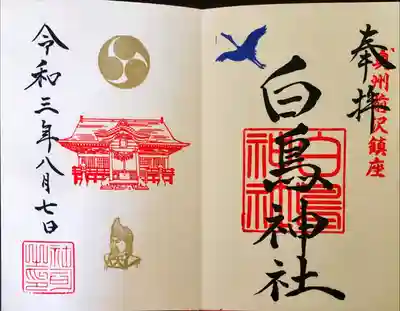 奉拝
奥州前沢鎮座
白鳥神社
白鳥神社
令和三年八月七日